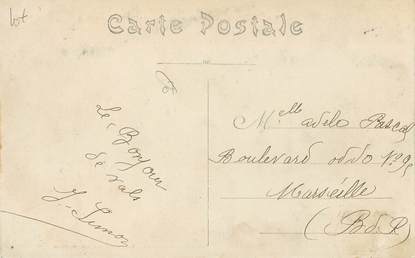 lot
Carte Postale
Le Bonjour
de Vals
J. Simon
Melle adelo Pascal
Boulevard oddo No 95
Marseille
(B d R)